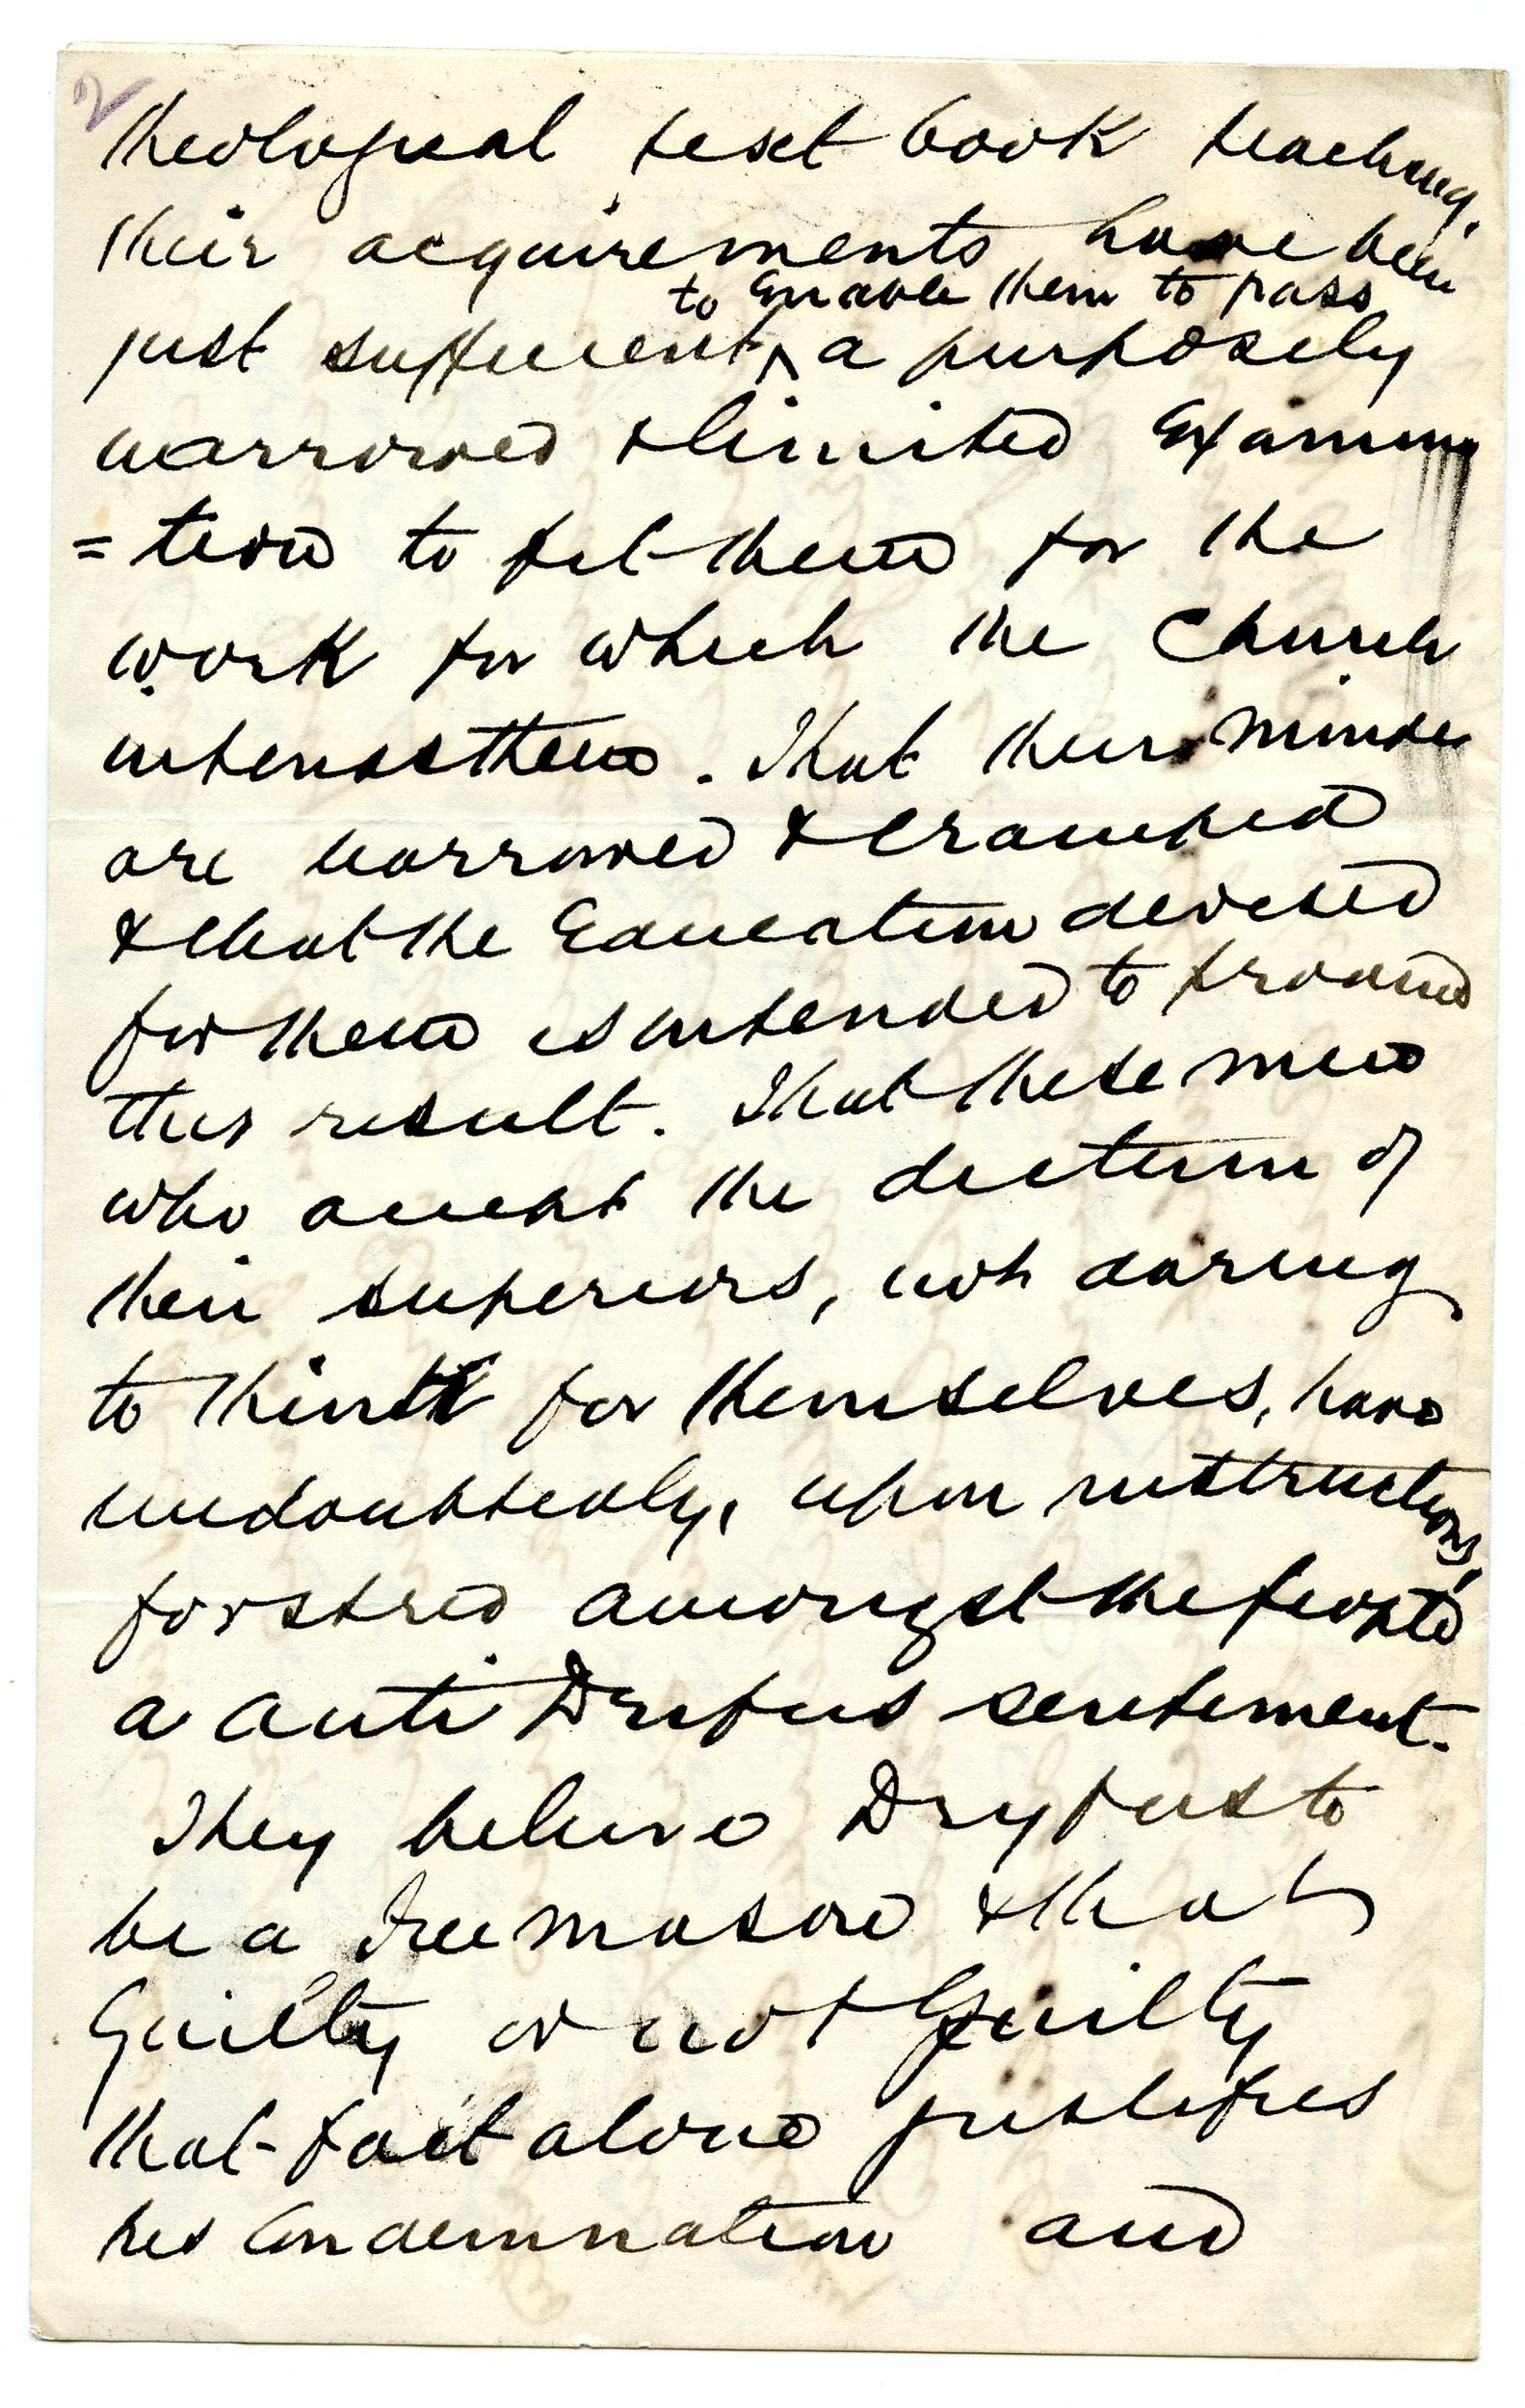 2
theological text book teaching,
their acquirements have been
to enable them to pass
just sufficient ^ a purposely
narrowed & limited Examina
=tion to fit them for the
work for which the Church
intends them. That their minds
are narrowed & cramped
& that the Education devised
for them is intended to
this result. That these men
who accept the dictum of
their superiors, not daring
to think for themselves, have
undoubtedly, upon instructions,
forstred amongst the people
a anti Drefus sentement.
They believe Dryfus to
be a Free mason & that
Guilty or not Guilty
that fact alone justifies
his Condemnation and